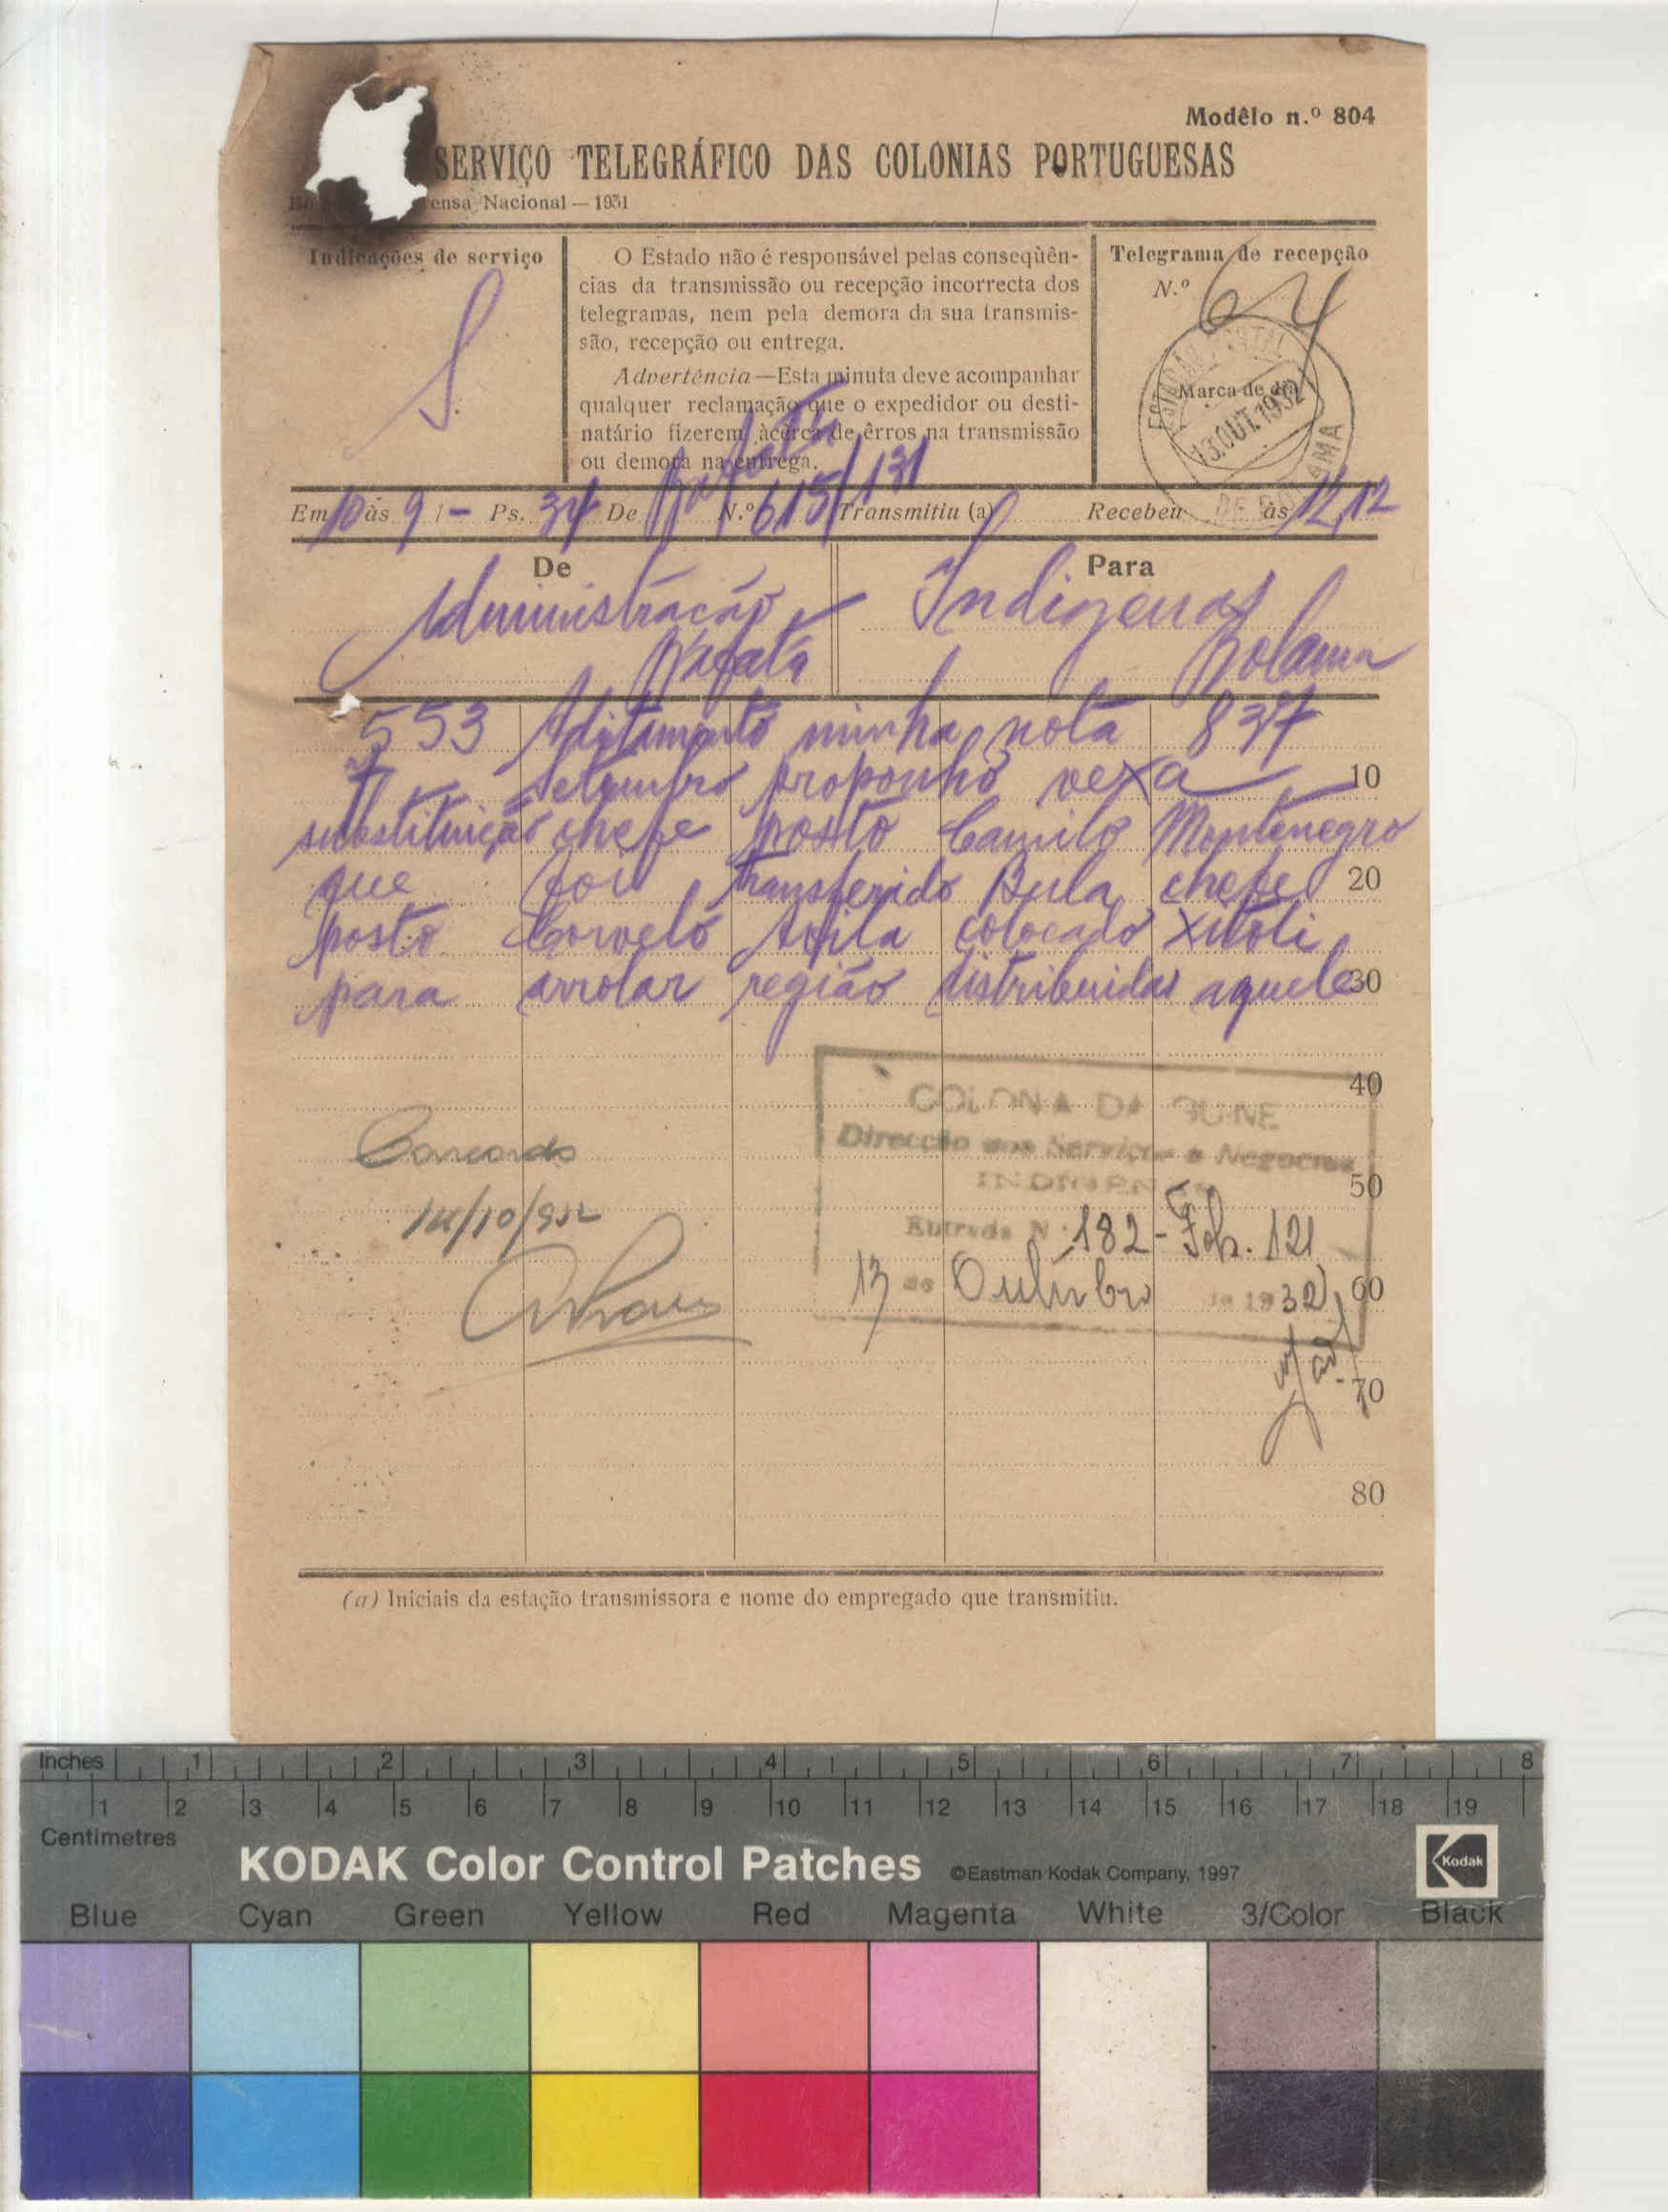 Modêlo n.º 804
SERVIÇO TELEGRÁFICO DAS COLONIAS PORTUGUESAS
ensa Nacional — 1931
Indicações de serviço
S
O Estado não é responsável pelas conseqùên-
cias da transmissão ou recepção incorrecta dos
telegramas, nem pela demora da sua transmis-
são, recepção ou entrega.
Advertência—Esta minuta deve acompanhar
qualquer reclamação que o expedidor ou desti-
natário fizerem àcêrca de êrros na transmissão
ou demora na entrega.
Telegrama de recepção
N.º 64
Marca de dia
ESTAÇÃO POSTAL
13.OUT.1932
DE BOLAMA
Em 10 às 9 /- Ps. 34 De Bafatá N.º 615/131 Transmitiu (a) Recebeu às 12,12
De
Administração
Bafatá
Para
Indigenas
Bolama
553 Aditamento minha nota 837
Setembro proponho vexa 10
substituição chefe posto Camilo Montenegro
que foi transferido Bula chefe 20
posto Corvelo Avila colocado Xitoli
para arrolar região distribuidas aquele 30
40
COLONIA DA GUINE
Direcção dos Serviços e Negocios
INDIGENAS
50
Entrada N.º 182 - Foh. 121
13 de Outubro de 1932 60
Concordo
14/10/932
70
80
(a) Iniciais da estação transmissora e nome do empregado que transmitiu.
Inches 1 2 3 4 5 6 7 8
1 2 3 4 5 6 7 8 9 10 11 12 13 14 15 16 17 18 19
Centimetres
KODAK Color Control Patches ©Eastman Kodak Company, 1997
Kodak
Blue Cyan Green Yellow Red Magenta White 3/Color Black